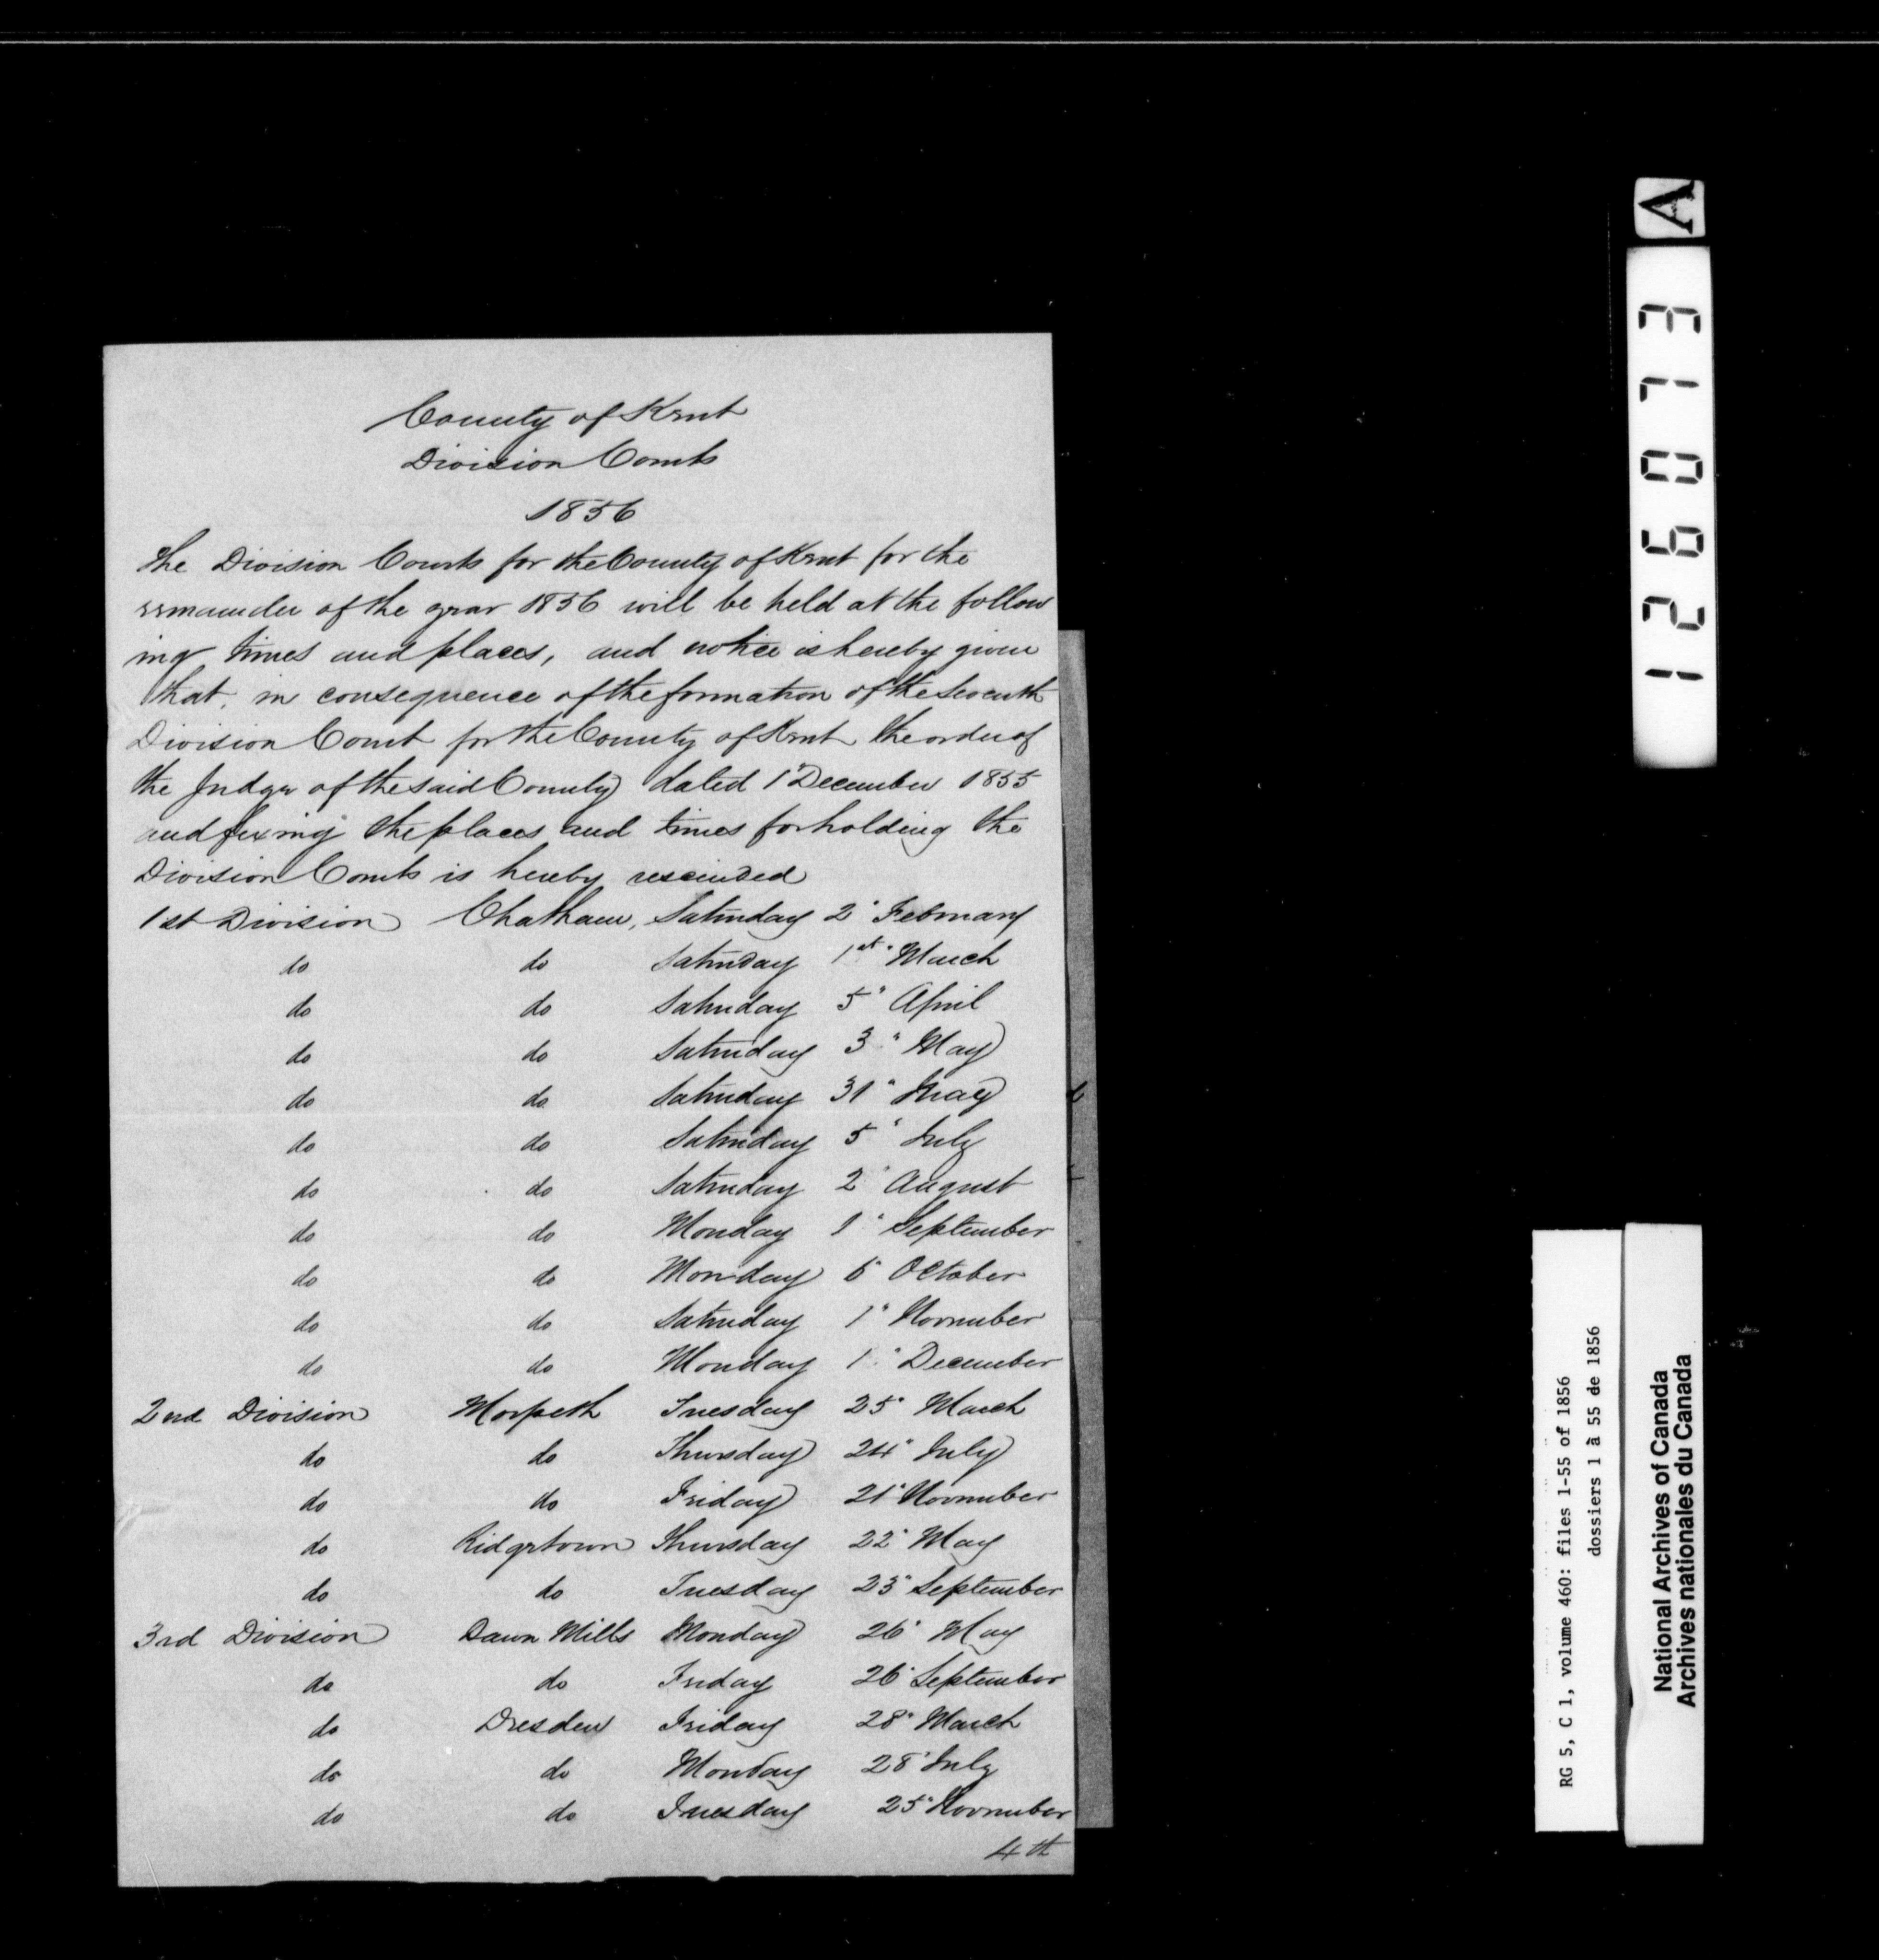 County of Kent
Division Courts
1856
The Division Courts for the County of Kent for the
remainder of the year 1856 will be held at the follow
ing times and places, and notice is hereby given
that, in consequence of the formation of the Seventh
Division Court for the County of Kent the order of
the Judge of the said County dated 1" December 1855
and fixing the places and times for holding the
Division Courts is hereby rescinded
1st Division Chatham, Saturday 2" February
do do Saturday 1st " March
do do Saturday 5" April
do do Saturday 3" May
do do Saturday 31" May
do do Saturday 5" July
do do Saturday 2" August
do do Monday 1" September
do do Monday 6" October
do do Saturday 1" November
do do Monday 1" December
2nd Division Morpeth Tuesday 25" March
do do Thursday 24" July
do do Friday 21" November
do Ridgetown Thursday 22" May
do do Tuesday 23" September
3rd Division Dawn Mills Monday 26" May
do do Friday 26" September
do Dresden Friday 28" March
do do Monday 28" July
do do Tuesday 25" November
4th
A
126073
RG 5, C 1, volume 460: files 1-55 of 1856
dossiers 1 à 55 de 1856
National Archives of Canada
Archives nationales du Canada